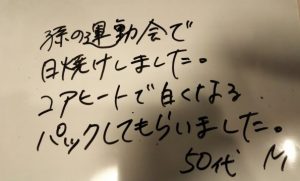 孫の運動会で
日焼けしました。
コアヒートで白くなる
パックしてもらいました。
50代 M